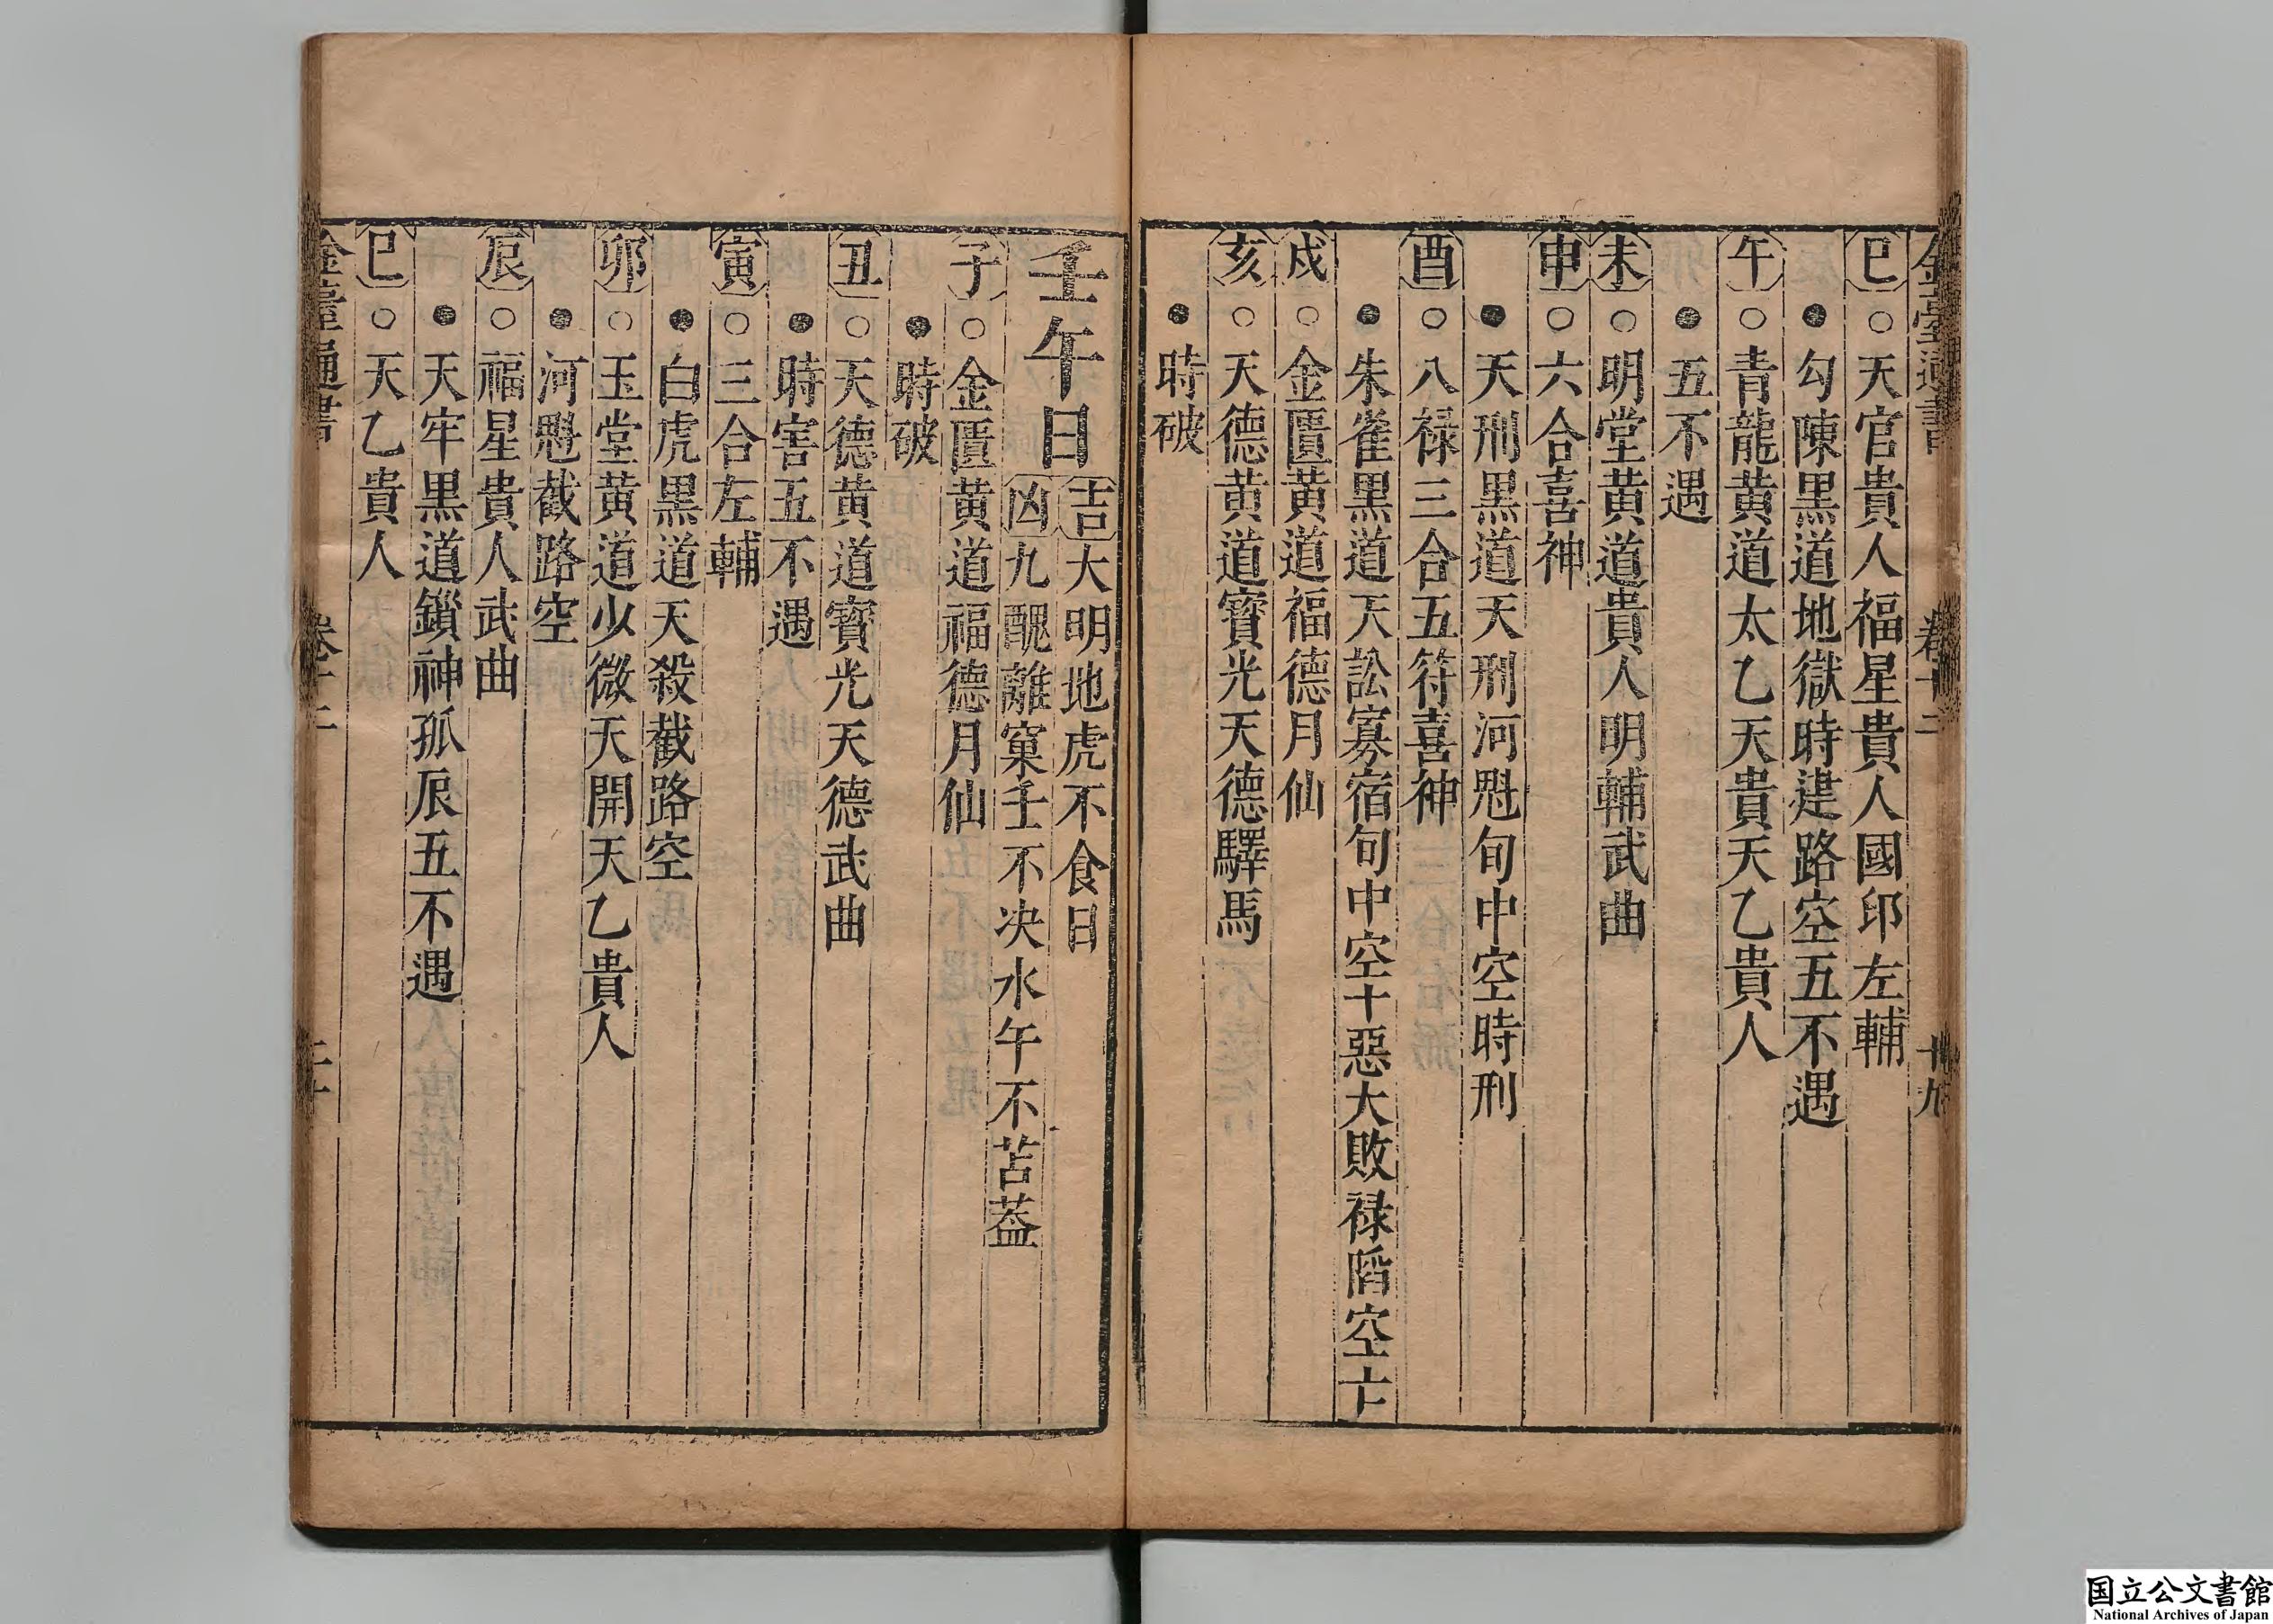 金臺通書 卷十二 十九
巳○天官貴人福星貴人國印左輔
●勾陳黑道地獄時建路空五不遇
午○青龍黃道太乙天貴天乙貴人
●五不遇
未○明堂黃道貴人明輔武曲
申○六合喜神
●天刑黑道天刑河魁旬中空時刑
酉○八祿三合五符喜神
●朱雀黑道天訟寡宿旬中空十惡大敗祿陷空亡
戍○金匱黃道福德月仙
亥○天德黃道寶光天德驛馬
●時破
壬午日
吉大明地虎不食日
凶九醜離窠壬不决水午不苫蓋
子○金匱黃道福德月仙
●時破
丑○天德黃道寳光天德武曲
●時害五不遇
寅○三合左輔
●白虎黑道天殺截路空
卯○玉堂黃道少微天開天乙貴人
●河魁截路空
辰○福星貴人武曲
●天牢黑道鎖神孤辰五不遇
巳○天乙貴人
金臺通書 卷十二 二十
国立公文書館
National Archives of Japan